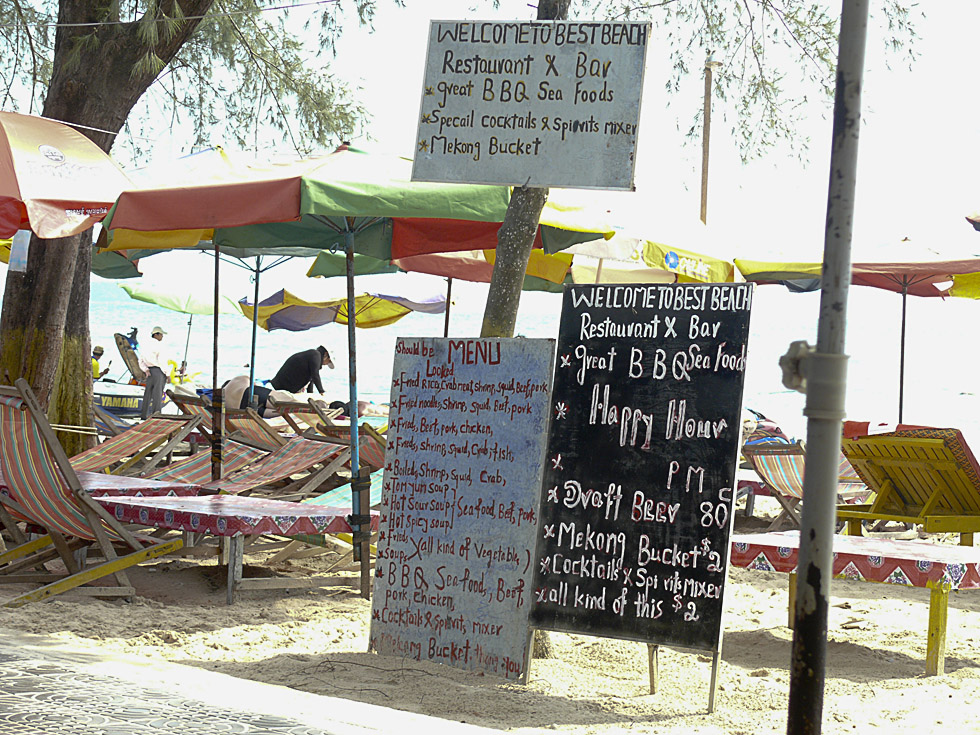 WELCOME TO BEST BEACH
Restaurant & Bar
* great BBQ Sea Foods
* Specail cocktails & Spirvits mixer
* Mekong Bucket
WELCOME TO BEST BEACH
Restaurant & Bar
* great BBQ Sea Foods
* Happy Hour
* PM
* Draft Beer 80
* Mekong Bucket $2
* Cocktails & Spirvits MIXER
* all kind of this $2
Should be MENU
Looked
* Fried Rice, Crab meat, shrimp, squid, Beef, pork
* Fried noodles, Shrimp, Squid, Beef, pork
* Fried, Beef, pork, chicken,
* Fried, shrimp, squid, Crab, fish,
* Boiled, Shrimp, Squid, Crab,
* Tom yum Soup
* Hot Sour Soup (Seafood, Beef, pork,
* Hot Spicy Soup
* Frieds
* Soups (all kind of Vegetable,)
* BBQ Sea foods, Beef,
pork, Chicken,
* Cocktails & spirvit, mixer
Mekong Bucket thank you
YAMANA